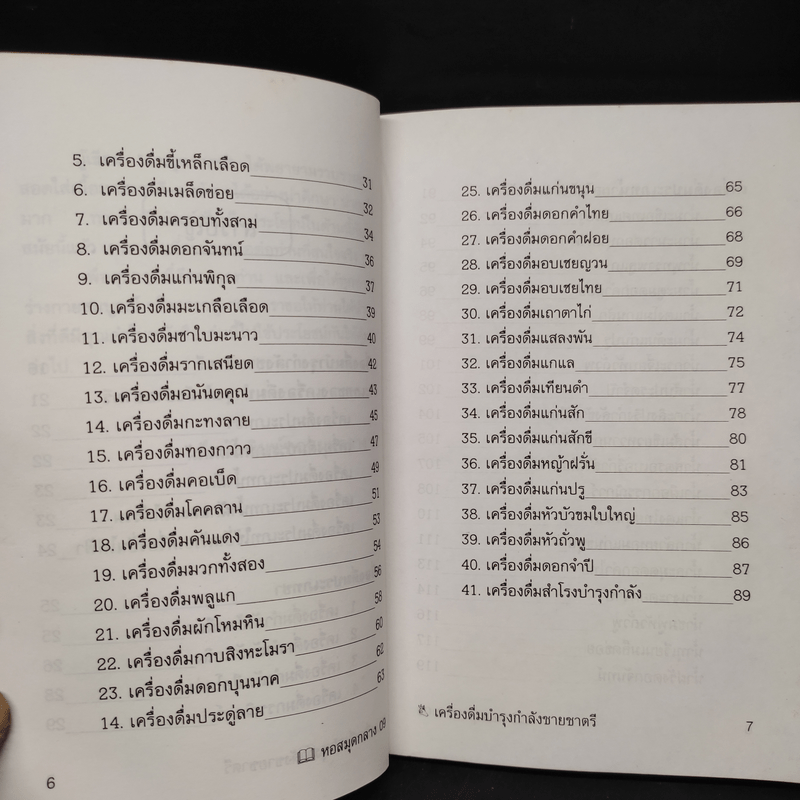 5. เครื่องดื่มขี้เหล็กเลือด 31
6. เครื่องดื่มเมล็ดข่อย 32
7. เครื่องดื่มครอบทั้งสาม 34
8. เครื่องดื่มดอกจันทน์ 36
9. เครื่องดื่มแก่นพิกุล 37
10. เครื่องดื่มมะเกลือเลือด 39
11. เครื่องดื่มชาใบมะนาว 40
12. เครื่องดื่มรากเสนียด 42
13. เครื่องดื่มอนันตคุณ 43
14. เครื่องดื่มกะทงลาย 45
15. เครื่องดื่มทองกวาว 47
16. เครื่องดื่มคอเบ็ด 49
17. เครื่องดื่มโคคลาน 51
18. เครื่องดื่มคันแดง 53
19. เครื่องดื่มมวกทั้งสอง 54
20. เครื่องดื่มพลูแก 56
21. เครื่องดื่มผักโหมหิน 58
22. เครื่องดื่มกาบสิงหะโมรา 60
23. เครื่องดื่มดอกบุนนาค 62
14. เครื่องดื่มประดู่ลาย 63
หอสมุดกลาง 09
6
25. เครื่องดื่มแก่นขนุน 65
26. เครื่องดื่มดอกคำไทย 66
27. เครื่องดื่มดอกคำฝอย 68
28. เครื่องดื่มอบเชยญวน 69
29. เครื่องดื่มอบเชยไทย 71
30. เครื่องดื่มเถาตาไก่ 72
31. เครื่องดื่มแสลงพัน 74
32. เครื่องดื่มแกแล 75
33. เครื่องดื่มเทียนดำ 77
34. เครื่องดื่มแก่นสัก 78
35. เครื่องดื่มแก่นสักขี 80
36. เครื่องดื่มหญ้าฝรั่น 81
37. เครื่องดื่มแก่นปรู 83
38. เครื่องดื่มหัวบัวขมใบใหญ่ 85
39. เครื่องดื่มหัวถั่วพู 86
40. เครื่องดื่มดอกจำปี 87
41. เครื่องดื่มสำโรงบำรุงกำลัง 89
เครื่องดื่มบำรุงกำลังชายชาตรี
7